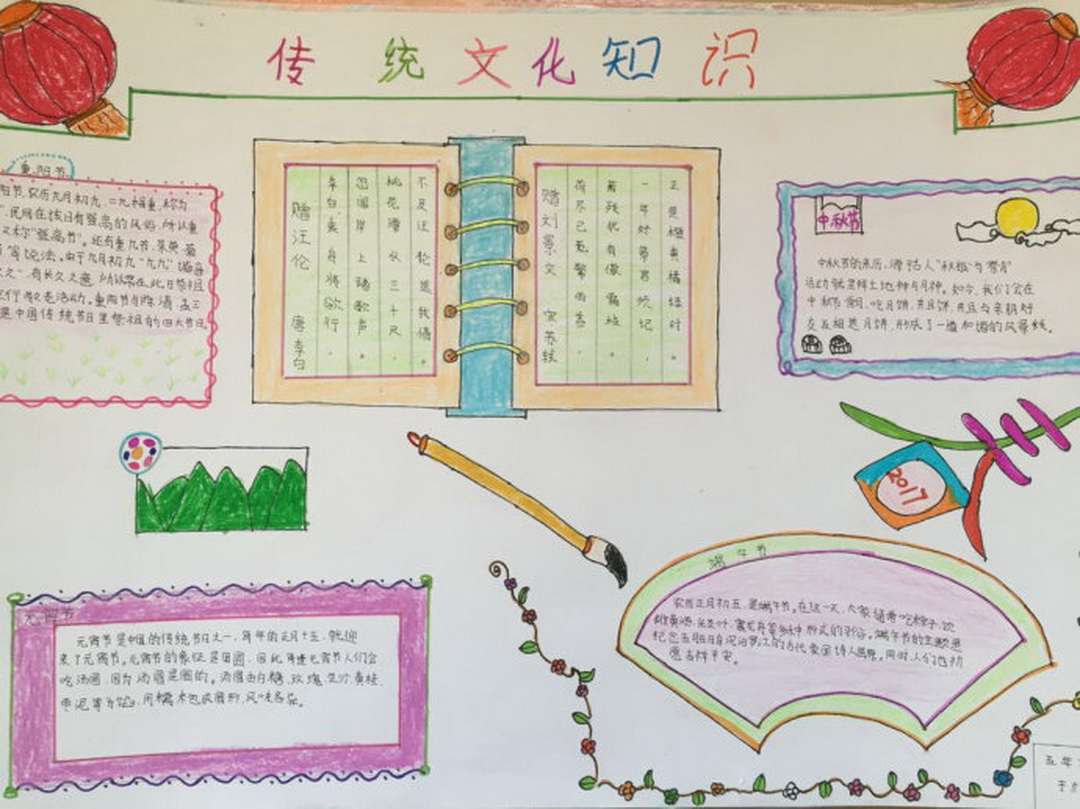 传统文化知识
重阳节
阳节,农历九月初九,二九相重,称为
",民间在该日有登高的风俗,所以重
又称"登高节"。还有重九节、茱萸、菊
等说法。由于九月初九"九九"谐音
久久",有长久之意,所以常在此日祭祖
行敬老活动。重阳节与除、清、盂三
是中国传统节日里祭祖的四大节日。
赠汪伦 唐 李白
李白乘舟将欲行,
忽闻岸上踏歌声。
桃花潭水三千尺,
不及汪伦送我情。
赠刘景文 宋 苏轼
荷尽已无擎雨盖,
菊残犹有傲霜枝
一年好景君须记,
正是橙黄橘绿时。
中秋节
中秋节的来历,源于古人"秋祖"与
活动就是拜土地神与月神。如今,我们会在
中秋节赏月、吃月饼,并且
友互相送月饼,形成了一道和谐的风景线。
2017
元宵节
元宵节是中国的传统节日之一,每年的正月十五,就迎
来了元宵节。元宵节的象征是团圆,因此每逢元宵节人们会
吃汤圆,因为汤圆是圆的。汤圆由白糖、玫瑰、豆沙、黄桂、
枣泥等为馅,用糯米包成圆形,风味各异。
端午节
农历正月初五,是端午节。在这一天,大家随着吃粽子、饮
雄黄酒、挂艾叶、赛龙舟等多种形式的
纪念五月五日自沉汨罗江的古代爱国诗人屈原。同时,人们也祈
愿吉祥平安。
五年